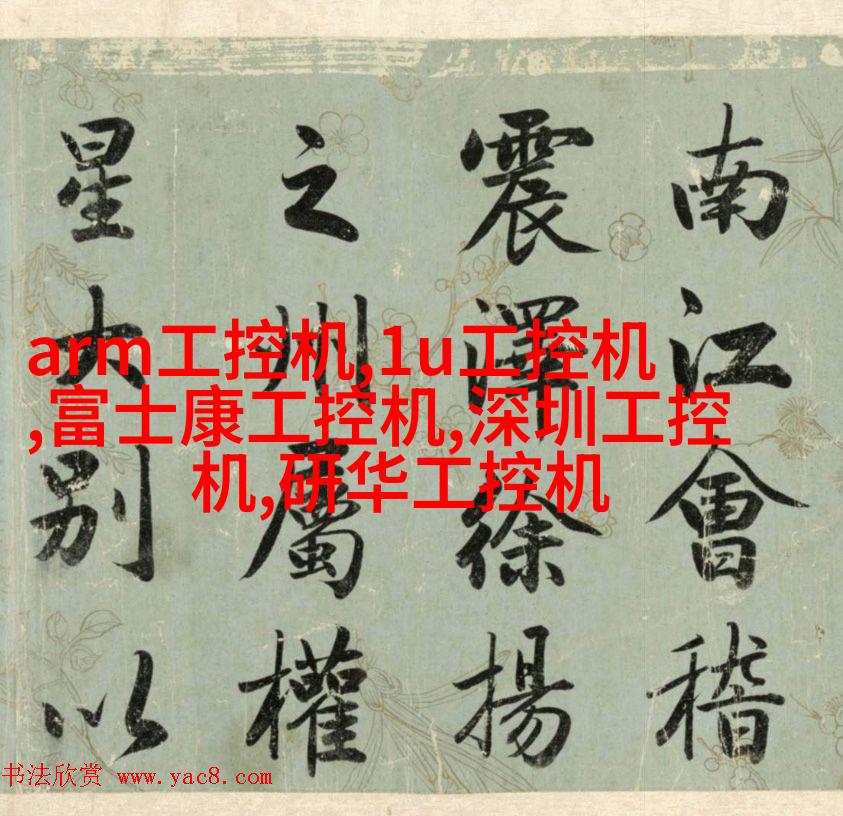 南江會稽
震澤徐揚
之州屬權
星大別以
arm工控机,1u工控机
,富士康工控机,深圳工控
机,研华工控机
书法欣赏 www.yac8.com